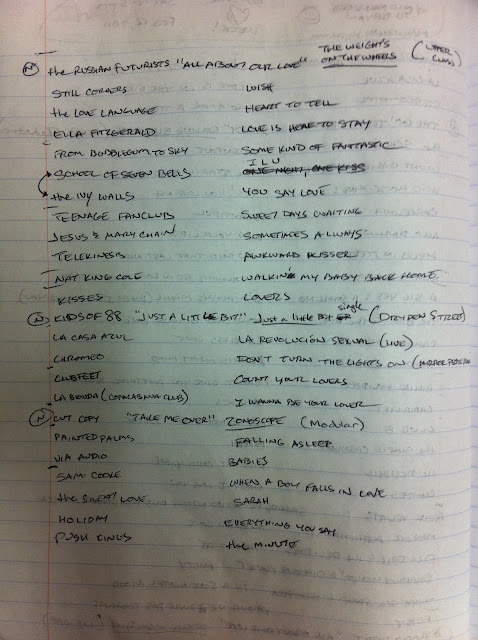 (N) the RUSSIAN FUTURISTS "ALL ABOUT OUR LOVE" THE WEIGHT'S ON THE WHEELS (UPPER CLASS)
STILL CORNERS WISH
the LOVE LANGUAGE HEART TO TELL
ELLA FITZGERALD LOVE IS HERE TO STAY
FROM BUBBLEGUM TO SKY SOME KIND OF FANTASTIC
SCHOOL OF SEVEN BELLS ILU ONE NIGHT, ONE KISS
the IVY WALLS YOU SAY LOVE
TEENAGE FANCLUB SWEET DAYS WAITING
JESUS & MARY CHAIN SOMETIMES ALWAYS
TELEKINESIS AWKWARD KISSER
NAT KING COLE WALKIN' MY BABY BACK HOME
KISSES LOVERS
(N) KIDS OF 88 "JUST A LITTLE BIT" Just a little Bit single (DRYDEN STREET)
LA CASA AZUL LA REVOLUCIÓN SEXUAL (LIVE)
CHROMEO DON'T TURN THE LIGHTS ON
CLUBFEET COUNT YOUR LOVERS
LA BIONDA (COPACABANA CLUB) I WANNA BE YOUR LOVER
(N) CUT COPY "TAKE ME OVER" ZONOSCOPE (Modular)
PAINTED PALMS FALLING ASLEEP
VIA AUDIO BABIES
SAM COOKE WHEN A BOY FALLS IN LOVE
the SILENT LOVE SARAH
HOLIDAY EVERYTHING YOU SAY
PUSH KINGS the MINUTE